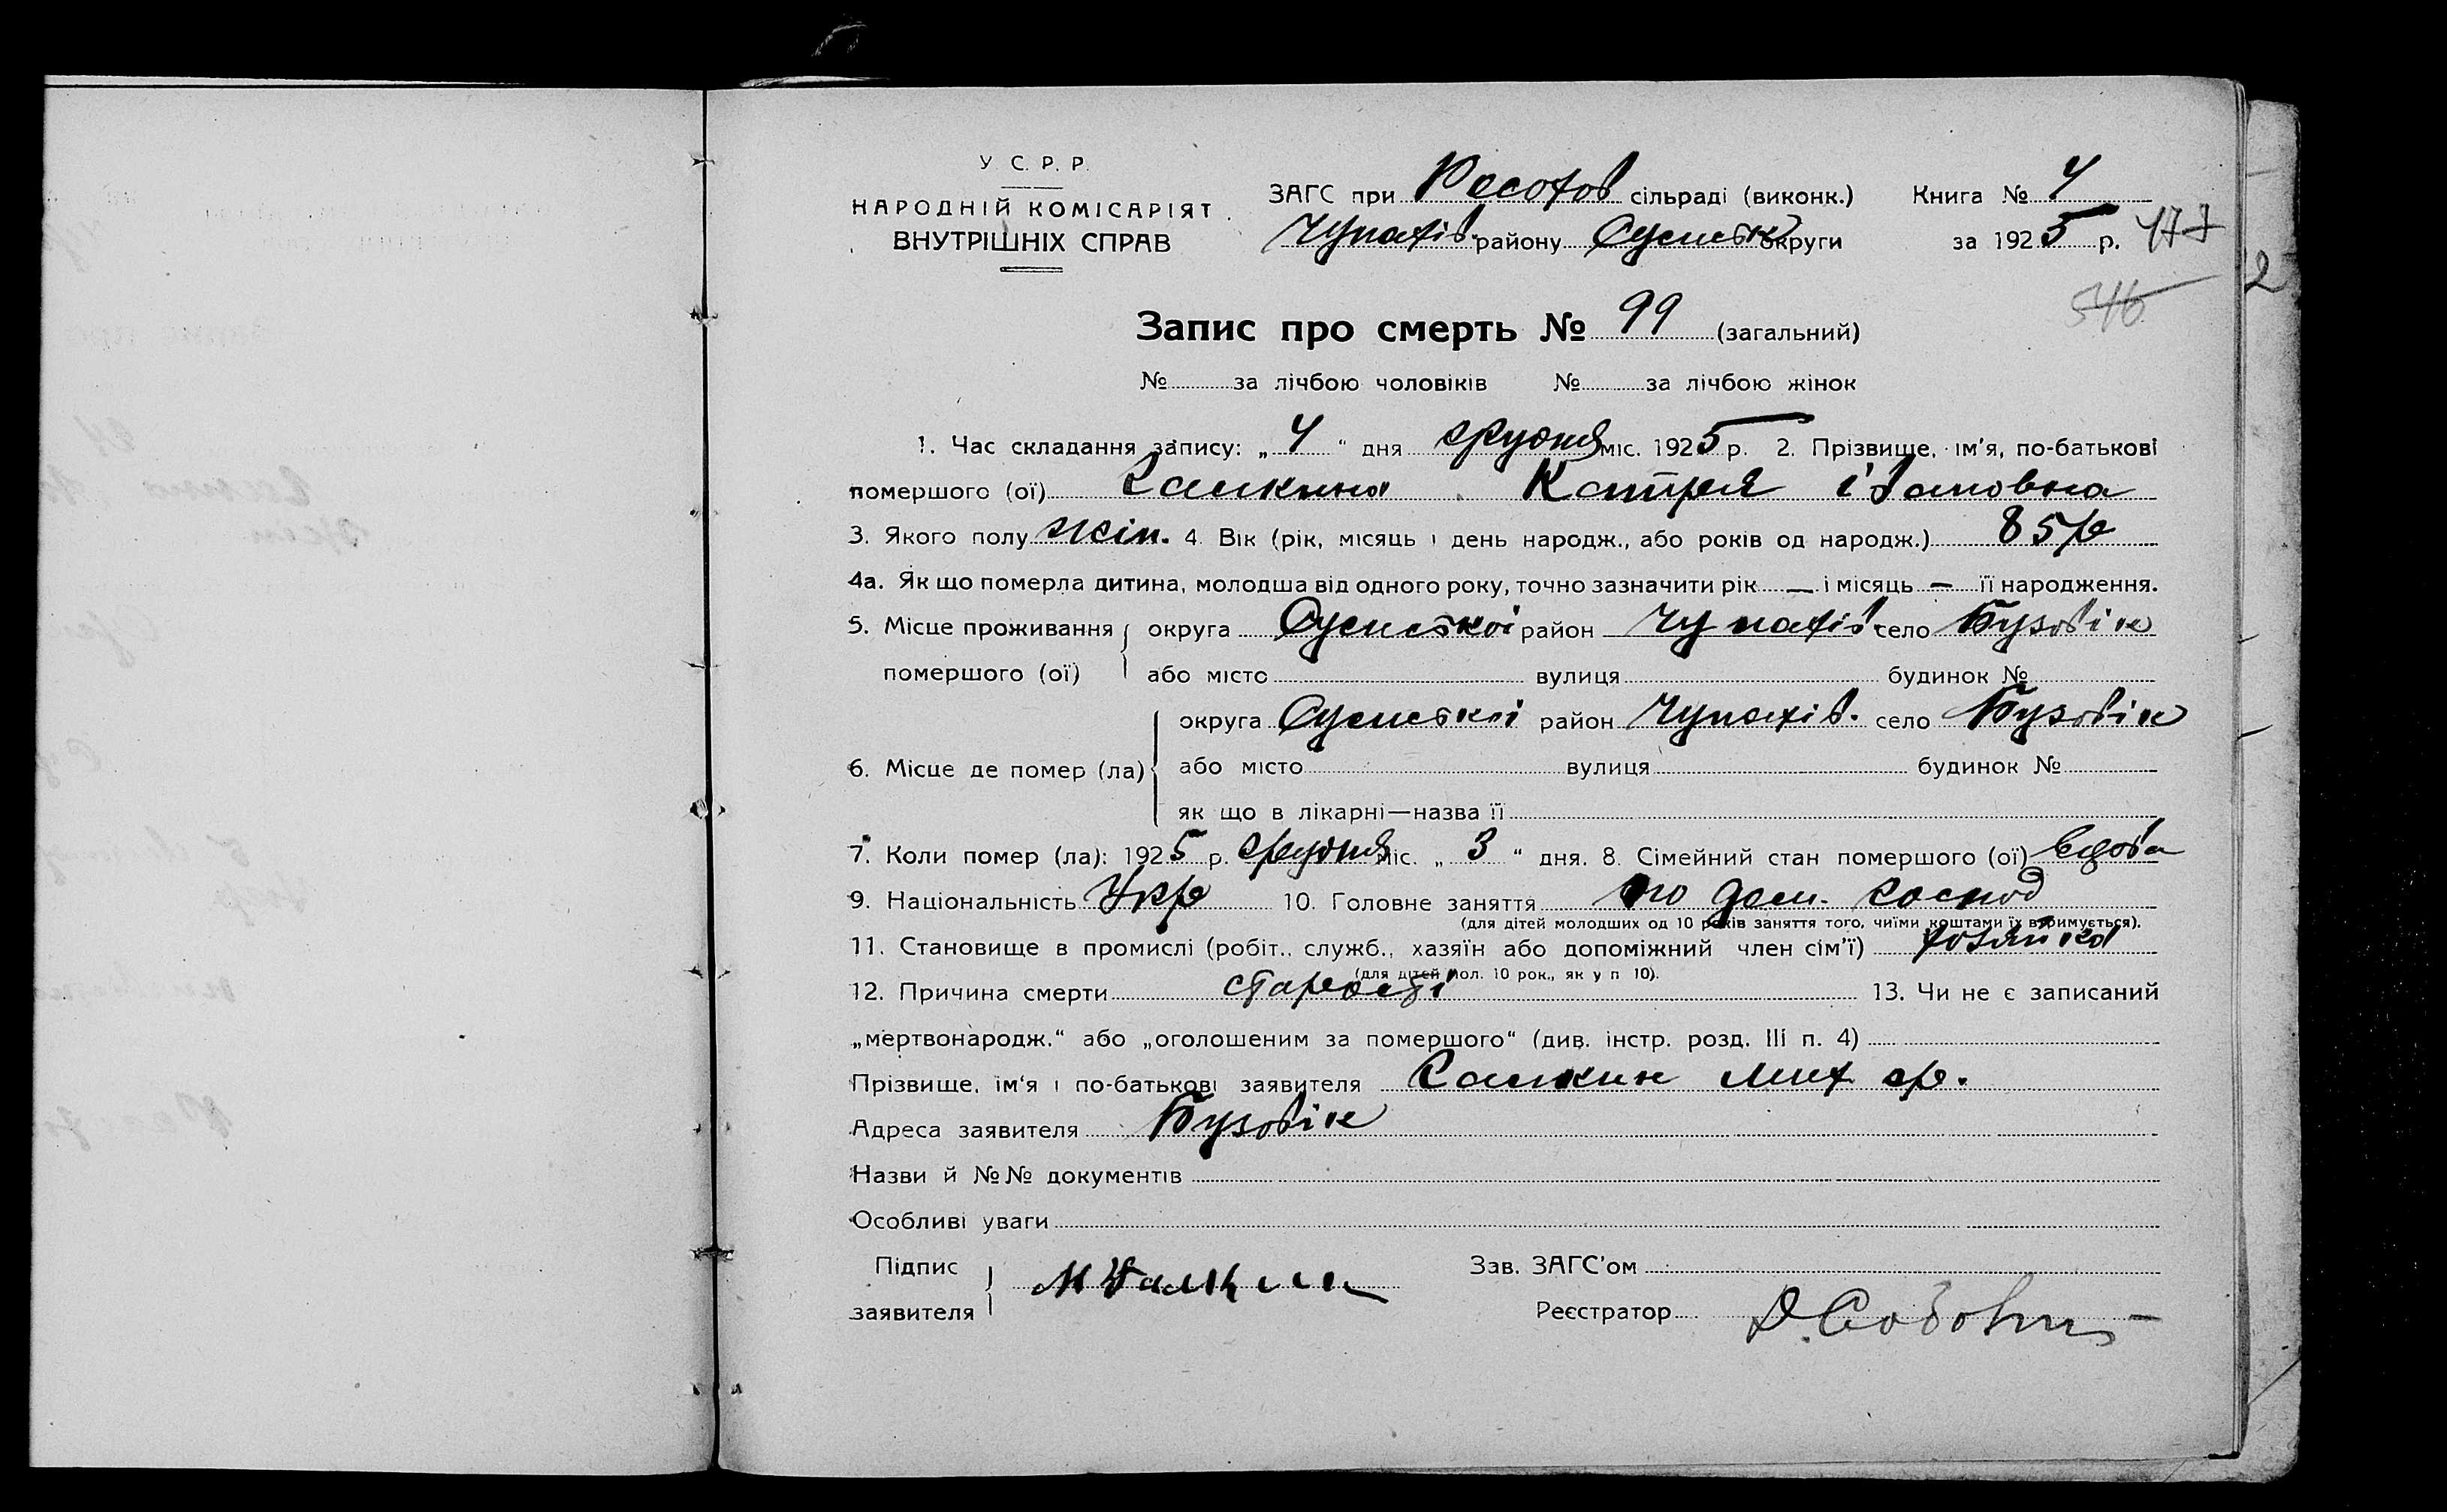 У. С. Р. Р.
НАРОДНІЙ КОМІСАРІЯТ
ВНУТРІШНІХ СПРАВ
ЗАГС при Росохов сільраді (виконк.) Книга № 4
Чупахів. району Сумськ округи за 1925 р. 477
546
Запис про смерть № 99 (загальний)
№ за лічбою чоловіків № за лічбою жінок
1. Час складання запису: „ 4 “ дня грудня міс. 1925 р. 2. Прізвище, ім'я, по-батькові
помершого (ої) Галкина Катря івановна
3. Якого полу жін. 4. Вік (рік, місяць і день народж., або років од народж.) 85 р
4а. Як що померла дитина, молодша від одного року, точно зазначити рік — і місяць — її народження.
5. Місце проживання помершого (ої) округа Сумської район Чупахів. село Бузовік
або місто вулиця будинок №
6. Місце де помер (ла) округа Сумської район Чупахів. село Бузовік
або місто вулиця будинок №
як що в лікарні—назва її
7. Коли помер (ла): 1925 р. грудня міс. „ 3 “ дня. 8. Сімейний стан помершого (ої) вдова
9. Національність Укр 10. Головне заняття по дом. господ
(для дітей молодших од 10 років заняття того, чиїми коштами їх втримується).
11. Становище в промислі (робіт., служб., хазяїн або допоміжний член сім'ї) хозяйка
(для дітей мол. 10 рок., як у п 10).
12. Причина смерти старости 13. Чи не є записаний
„мертвонародж.“ або „оголошеним за помершого“ (див. інстр. розд. III п. 4)
Прізвище, ім'я і по-батькові заявителя Галкин Мих гр.
Адреса заявителя Бузовік
Назви й №№ документів
Особливі уваги
Підпис заявителя М Галкин Зав. ЗАГС'ом
Реєстратор